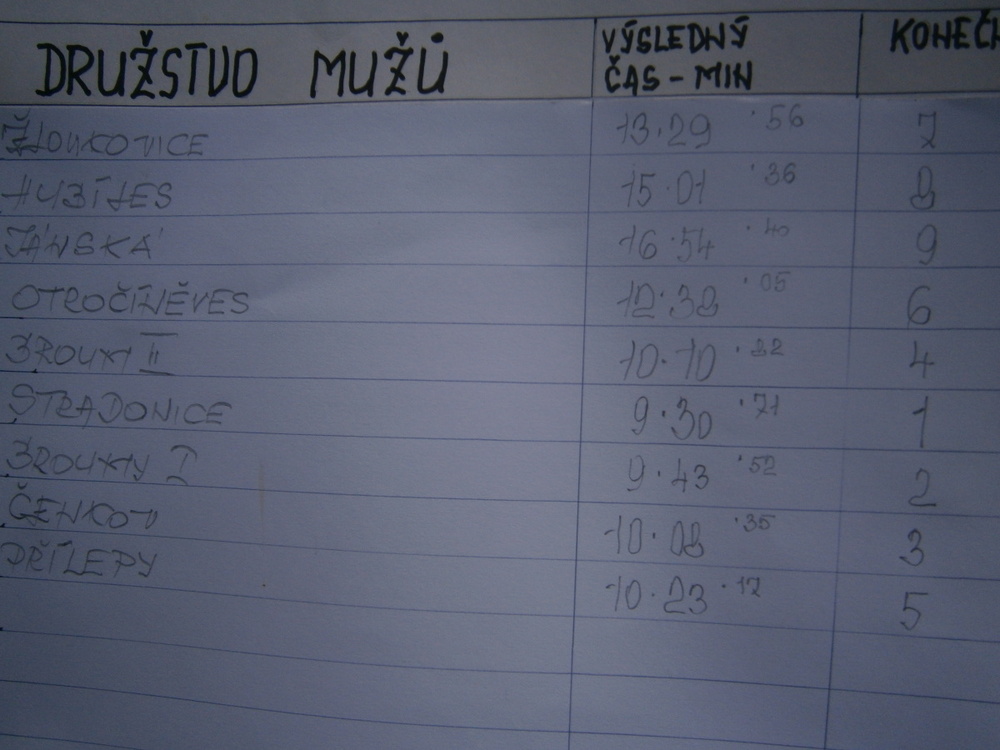 DRUŽSTVO MUŽŮ VÝSLEDNÝ ČAS - MIN KONEČN
HUBÍJES 15.01 .36 8
JÁNSKÁ 16.54 .40 9
OTROČÍNĚVES 12.38 .05 6
BROUMY II 10.10 .22 4
STRADONICE 9.30 .71 1
BROUMY I 9.43 .52 2
ČENKOV 10.08 .35 3
PŘÍLEPY 10.23 .17 5
13.29 .56 7